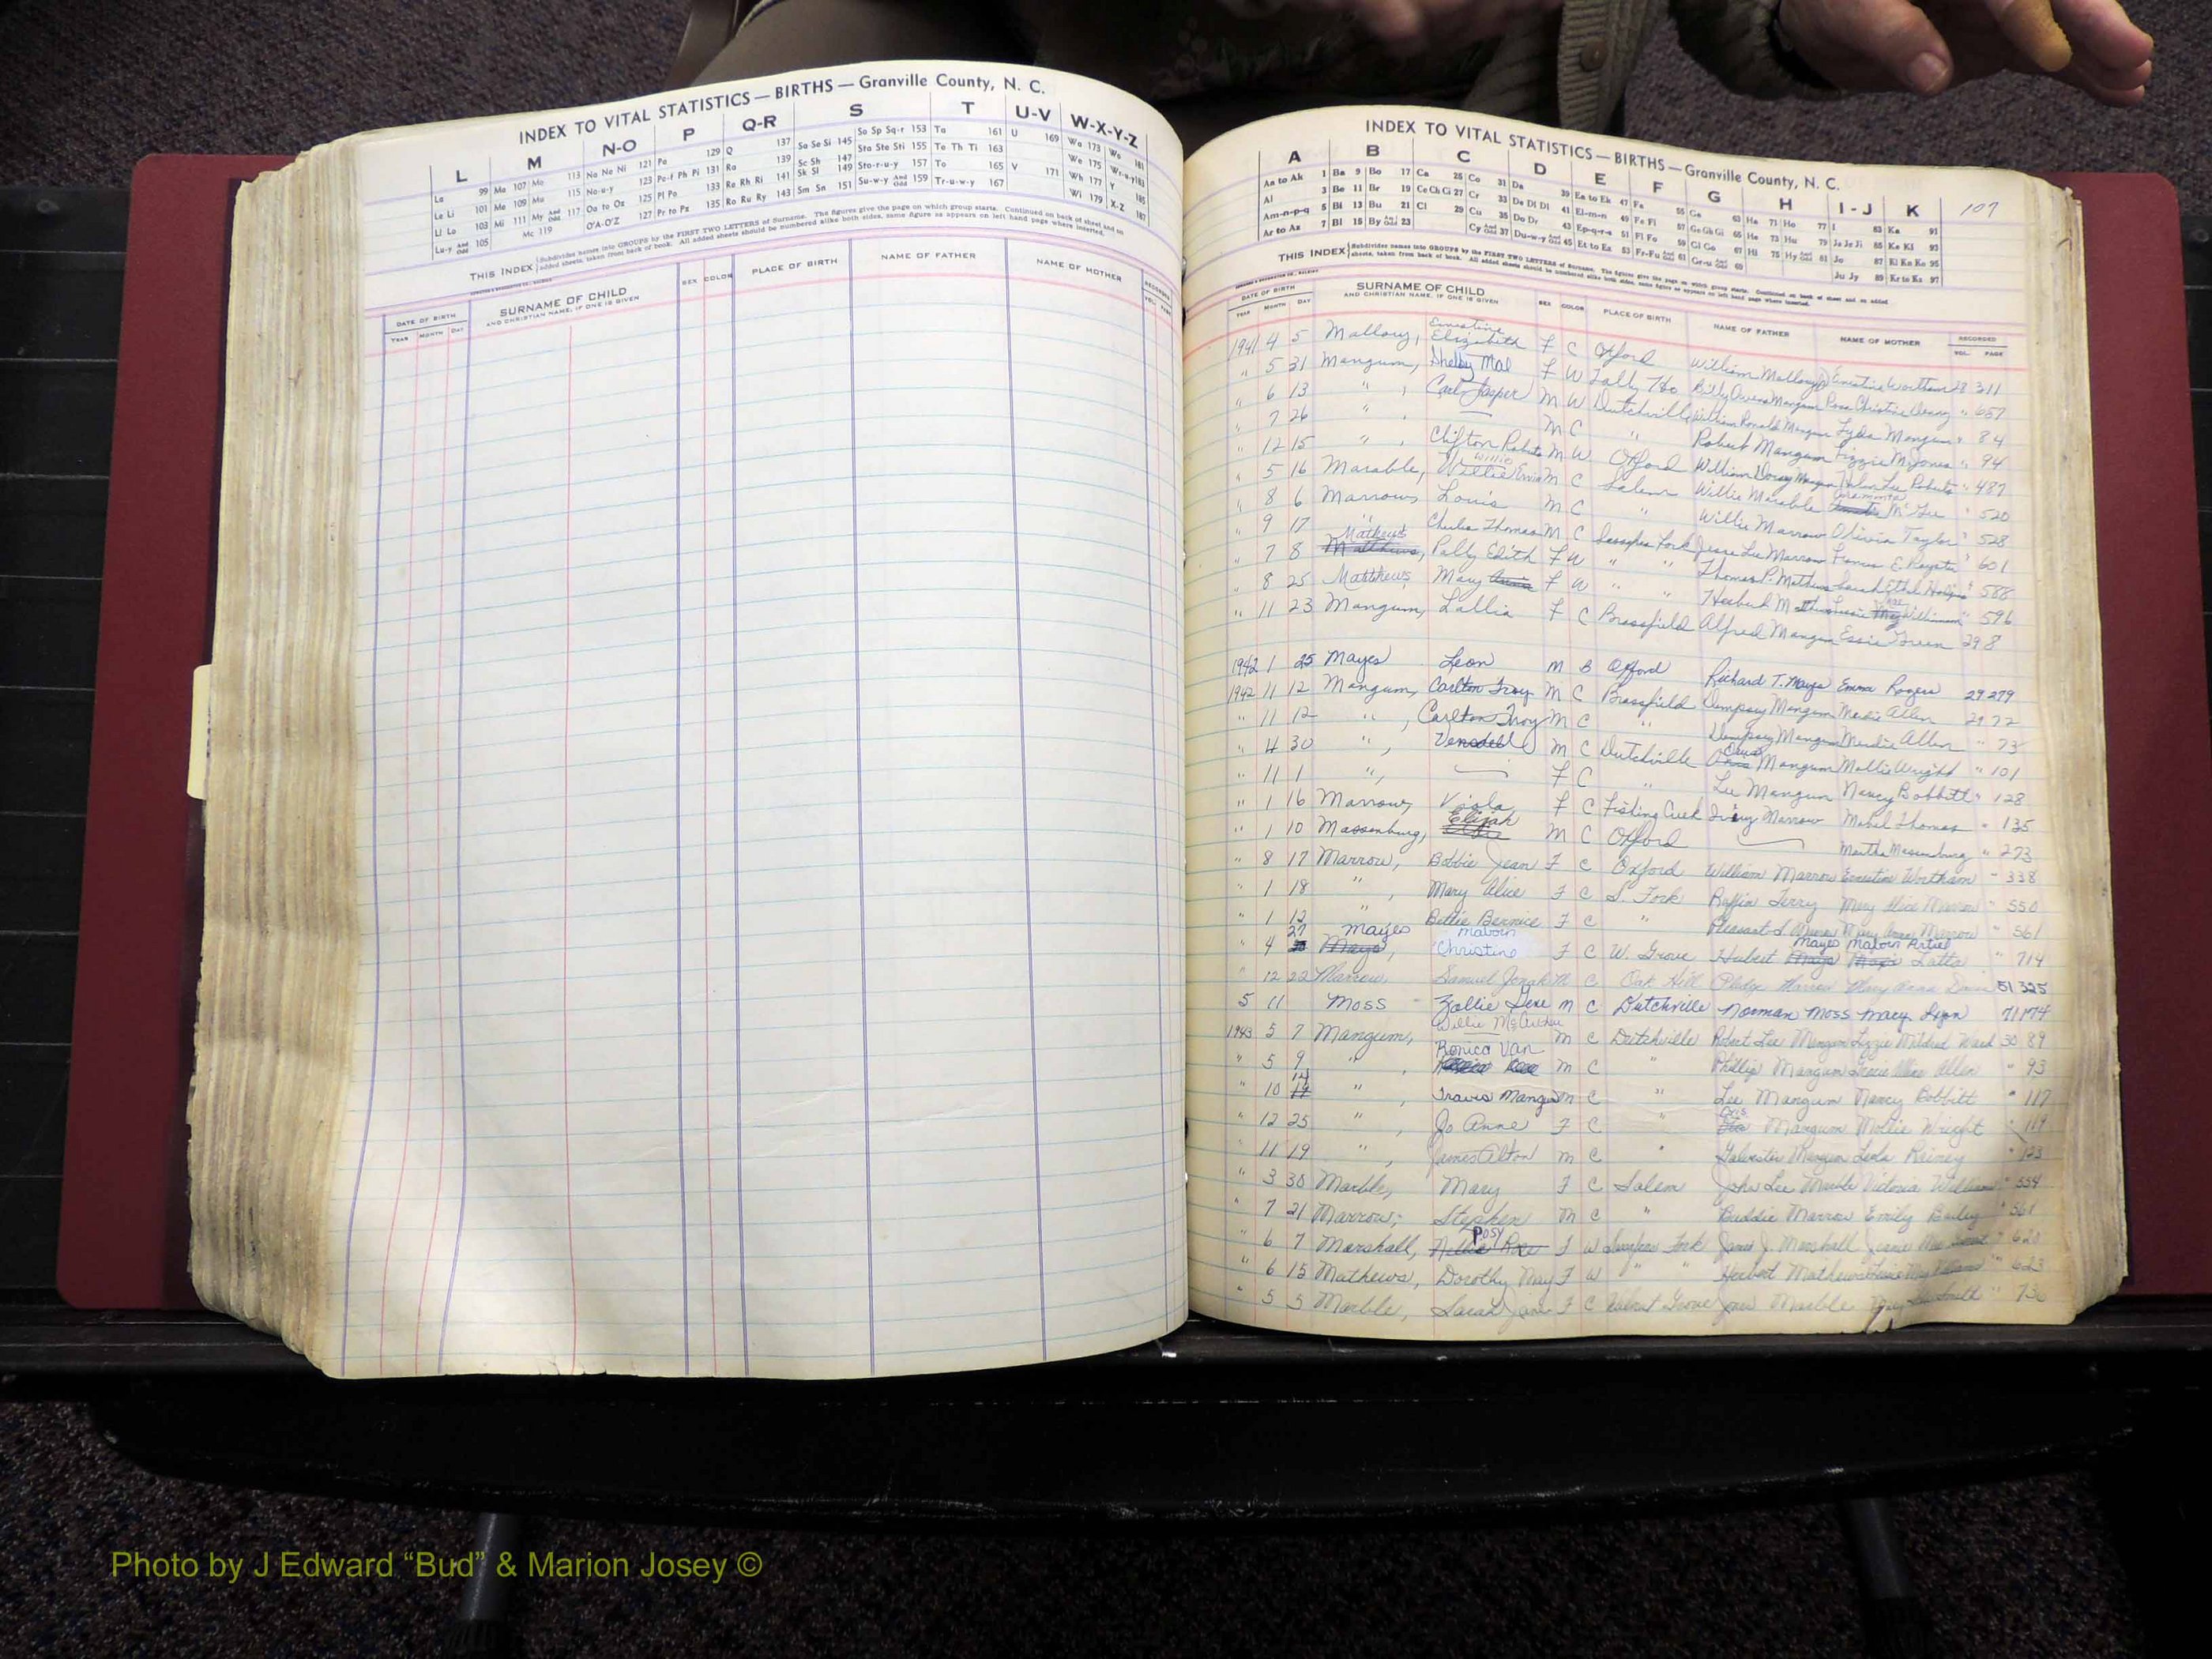 INDEX TO VITAL STATISTICS — BIRTHS — Granville County, N. C.
L M N-O P Q-R S T U-V W-X-Y-Z
La 99 Ma 107 Mo 113 Na Ne Ni 121 Pa 129 Q 137 Sa Se Si 145 So Sp Sq-r 153 Ta 161 U 169 Wa 173 Wo 181
Le Li 101 Me 109 Mu 115 No-u-y 123 Pe-f Ph Pi 131 Ra 139 Sc Sh 147 Sta Ste Sti 155 Te Th Ti 163 We 175 Wr-u-y 183
Ll Lo 103 Mi 111 My And Odd 117 Oa to Oz 125 Pl Po 133 Re Rh Ri 141 Sk Sl 149 Sto-r-u-y 157 To 165 V 171 Wh 177 Y 185
Lu-y And Odd 105 Mc 119 O'A-O'Z 127 Pr to Pz 135 Ro Ru Ry 143 Sm Sn 151 Su-w-y And Odd 159 Tr-u-w-y 167 Wi 179 X-Z 187
THIS INDEX Subdivides names into GROUPS by the FIRST TWO LETTERS of Surname. The figures give the page on which group starts. Continued on back of sheet and on
added sheets, taken from back of book. All added sheets should be numbered alike both sides, same figure as appears on left hand page where inserted.
DATE OF BIRTH SURNAME OF CHILD SEX COLOR PLACE OF BIRTH NAME OF FATHER NAME OF MOTHER RECORDED
YEAR MONTH DAY AND CHRISTIAN NAME, IF ONE IS GIVEN VOL. PAGE
INDEX TO VITAL STATISTICS — BIRTHS — Granville County, N. C.
107
A B C D E F G H I-J K
Aa to Ak 1 Ba 9 Bo 17 Ca 25 Co 31 Da 39 Ea to Ek 47 Fa 55 Ga 63 Ha 71 Ho 77 I 83 Ka 91
Al 3 Be 11 Br 19 Ce Ch Ci 27 Cr 33 De Di Dl 41 El-m-n 49 Fe Fi 57 Ge Gh Gi 65 He 73 Hu 79 Ja Je Ji 85 Ke Ki 93
Am-n-p-q 5 Bi 13 Bu 21 Cl 29 Cu 35 Do Dr 43 Ep-q-r-s 51 Fl Fo 59 Gl Go 67 Hi 75 Hy And Odd 81 Jo 87 Kl Kn Ko 95
Ar to Az 7 Bl 15 By And Odd 23 Cy And Odd 37 Du-w-y And Odd 45 Et to Ez 53 Fr-Fu And Odd 61 Gr-u And Odd 69 Ju Jy 89 Kr to Kz 97
THIS INDEX Subdivides names into GROUPS by the FIRST TWO LETTERS of Surname. The figures give the page on which group starts. Continued on back of sheet and on added
sheets, taken from back of book. All added sheets should be numbered alike both sides, same figure as appears on left hand page where inserted.
DATE OF BIRTH SURNAME OF CHILD SEX COLOR PLACE OF BIRTH NAME OF FATHER NAME OF MOTHER RECORDED
YEAR MONTH DAY AND CHRISTIAN NAME, IF ONE IS GIVEN VOL. PAGE
1941 4 5 Mallory, Ernestine Elizabeth F C Oxford William Mallory Ernestine Wortham 28 311
" 5 31 Mangum, Shelby Mae F W Tally Ho Billy Owens Mangum Rosa Christine " 657
" 6 13 " , Carl Jasper M W Dutchville William Ronald Mangum Lyda Mangum " 84
" 7 26 " , — M C " Robert Mangum Lizzie M Jones " 94
" 12 15 " , Clifton Roberts M W Oxford William Dorsey Mangum Helen Lee Roberts " 487
" 5 16 Marable, Willie Ervin M C Salem Willie Marable McGee " 520
" 8 6 Marrow, Louis M C " Willie Marrow Olivia Taylor " 528
" 9 17 " Charles Thomas M C Sassafras Fork Jesse Lee Marrow Frances E. Royster " 601
" 7 8 Mathews Matthews, Polly Edith F W " " Thomas P. Mathews Sarah Ethel " 588
" 8 25 Matthews, Mary Annie F W " " Herbert M Williamson " 596
" 11 23 Mangum, Lallia F C Brassfield Alfred Mangum Essie Green 29 8
1942 1 25 Mayes Leon M B Oxford Richard T. Mayes Emma Rogers 29 279
1942 11 12 Mangum, Carlton Troy M C Brassfield Dempsey Mangum Merdie Allen 29 72
" 11 12 " , Carlton Troy M C " Dempsey Mangum Merdie Allen " 73
" 4 30 " , Venodell M C Dutchville Mangum Mollie Wright " 101
" 11 1 " , — F C " Lee Mangum Nancy Bobbitt " 128
" 1 16 Marrow, Viola F C Fishing Creek Marrow Mabel Thomas " 135
" 1 10 Massenburg, Elijah M C Oxford — Martha Massenburg " 273
" 8 17 Marrow, Bobbie Jean F C Oxford William Marrow Ernestine Wortham " 338
" 1 18 " , Mary Alice F C S. Fork Ruffin Terry Mary Alice Marrow " 550
" 1 12 " , Bettie Bernice F C " Mary Anna Marrow " 561
" 4 27 Mayes Mays, Malvin Christine F C W. Grove Herbert Mayes Malvin Artiel Latta " 714
" 12 22 Marrow, Samuel Jonah M C Oak Hill Pledge Marrow Mary Anna Davis 51 325
5 11 Moss Zollie Gene M C Dutchville Norman Moss Mary Lyon 71 174
1943 5 7 Mangum, Willie McArthur M C Dutchville Robert Lee Mangum Lizzie Mildred Ward 30 89
" 5 9 " , Ronico Van M C " Phillip Mangum Allen " 93
" 10 14 " , Travis Mangum M C " Lee Mangum Nancy Bobbitt " 117
" 12 25 " , Jo Anne F C " Mangum Mollie Wright " 119
" 11 19 " , James Alton M C " Galvester Mangum Leola Rainey " 123
" 3 30 Marble, Mary F C Salem John Lee Marble Victoria Williams " 554
" 7 21 Marrow, Stephen M C " Buddie Marrow Emily Bailey " 561
" 6 7 Marshall, Nellie Rose Posy F W Sassafras Fork James J. Marshall " 621
" 6 15 Mathews, Dorothy May F W " " Herbert Mathews " 623
" 5 5 Marble, Sarah Jane F C Walnut Grove Marble Smith " 730
Photo by J Edward “Bud” & Marion Josey ©